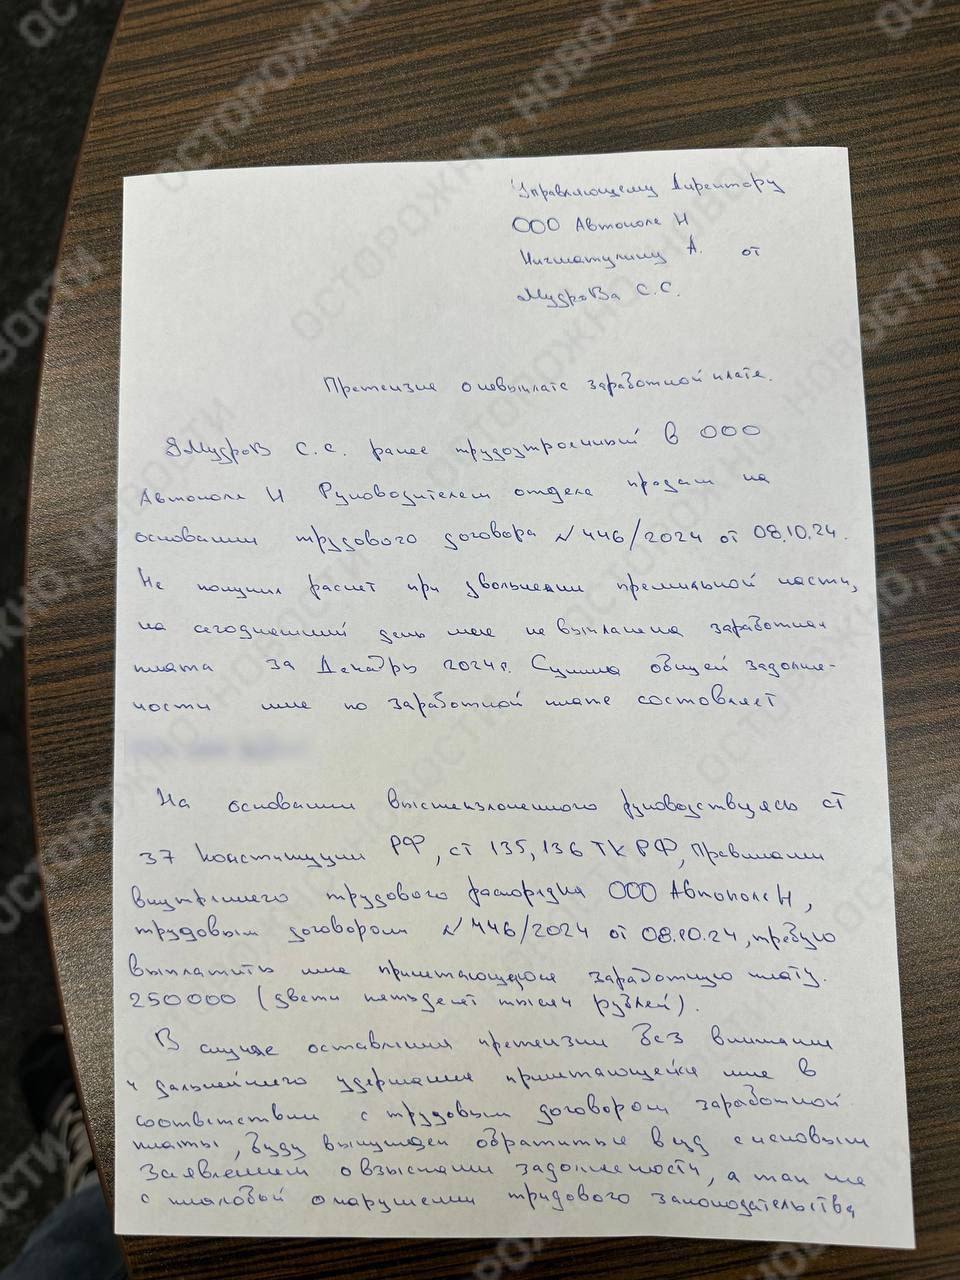 Управляющему Директору
ООО Автополе Н
Нигматулину А. от
Мудрова С.С.
Претензия о невыплате заработной плате.
Я Мудров С.С. ранее трудоустроенный в ООО
Автополе Н Руководителем отдела продаж на
основании трудового договора №446/2024 от 08.10.24.
Не получил расчет при увольнении премиальной части,
на сегодняшний день мне не выплачена заработная
плата за Декабрь 2024г. Сумма общей задолже-
ности мне по заработной плате составляет
На основании вышеизложенного руководствуясь ст
37 Конституции РФ, ст 135, 136 ТК РФ, Правилами
внутреннего трудового распорядка ООО Автополе Н,
трудовым договором №446/2024 от 08.10.24, требую
выплатить мне причитающуюся заработную плату.
250000 (двести пятьдесят тысяч рублей).
В случае оставления претензии без внимания
и дальнейшего удержания причитающейся мне в
соответствии с трудовым договором заработной
платы, буду вынужден обратиться в суд с исковым
заявлением о взыскании задолжености, а так же
с жалобой о нарушении трудового законодательства
ОСТОРОЖНО, НОВОСТИ